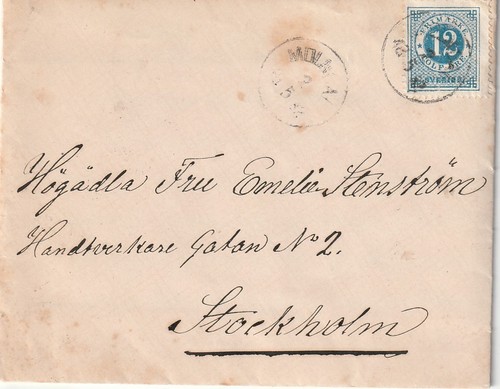 FRIMÄRKE
12
TOLF ÖRE
SVERIGE
Högädla Fru Emelie Stenström
Handtverkare Gatan No 2.
Stockholm